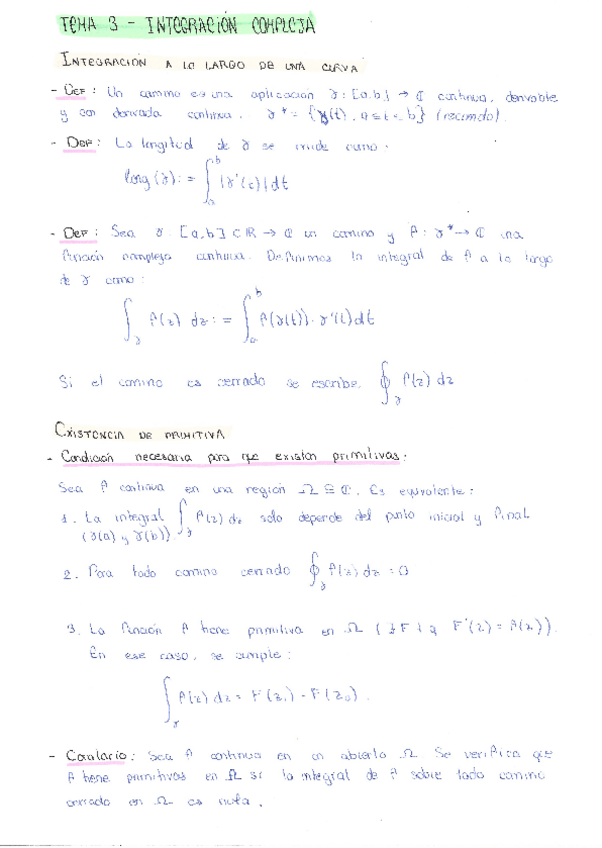 TEMA 3 - INTEGRACIÓN COMPLEJA
INTEGRACIÓN A LO LARGO DE UNA CURVA
- DEF: Un camino es una aplicación γ: [a,b] → ℂ continua, derivable
y con derivada continua. γ* = {γ(t), a ≤ t ≤ b} (recorrido).
- DEF: La longitud de γ se mide como:
long(γ) := ∫_a^b |γ'(t)| dt
- DEF: Sea γ: [a,b] ⊂ ℝ → ℂ un camino y f: γ* → ℂ una
función compleja continua. Definimos la integral de f a lo largo
de γ como:
∫_γ f(z) dz := ∫_a^b f(γ(t)) · γ'(t) dt
Si el camino es cerrado se escribe ∮_γ f(z) dz
EXISTENCIA DE PRIMITIVA
- Condición necesaria para que existan primitivas:
Sea f continua en una región Ω ⊆ ℂ. Es equivalente:
1. La integral ∫_γ f(z) dz solo depende del punto inicial y final
(γ(a) y γ(b))
2. Para todo camino cerrado ∮_γ f(z) dz = 0
3. La función f tiene primitiva en Ω (∃ F t q F'(z) = f(z)).
En ese caso, se cumple:
∫_γ f(z) dz = F(z₁) - F(z₀).
- Corolario: Sea f continua en un abierto Ω. Se verifica que
f tiene primitivas en Ω si la integral de f sobre todo camino
cerrado en Ω es nula.